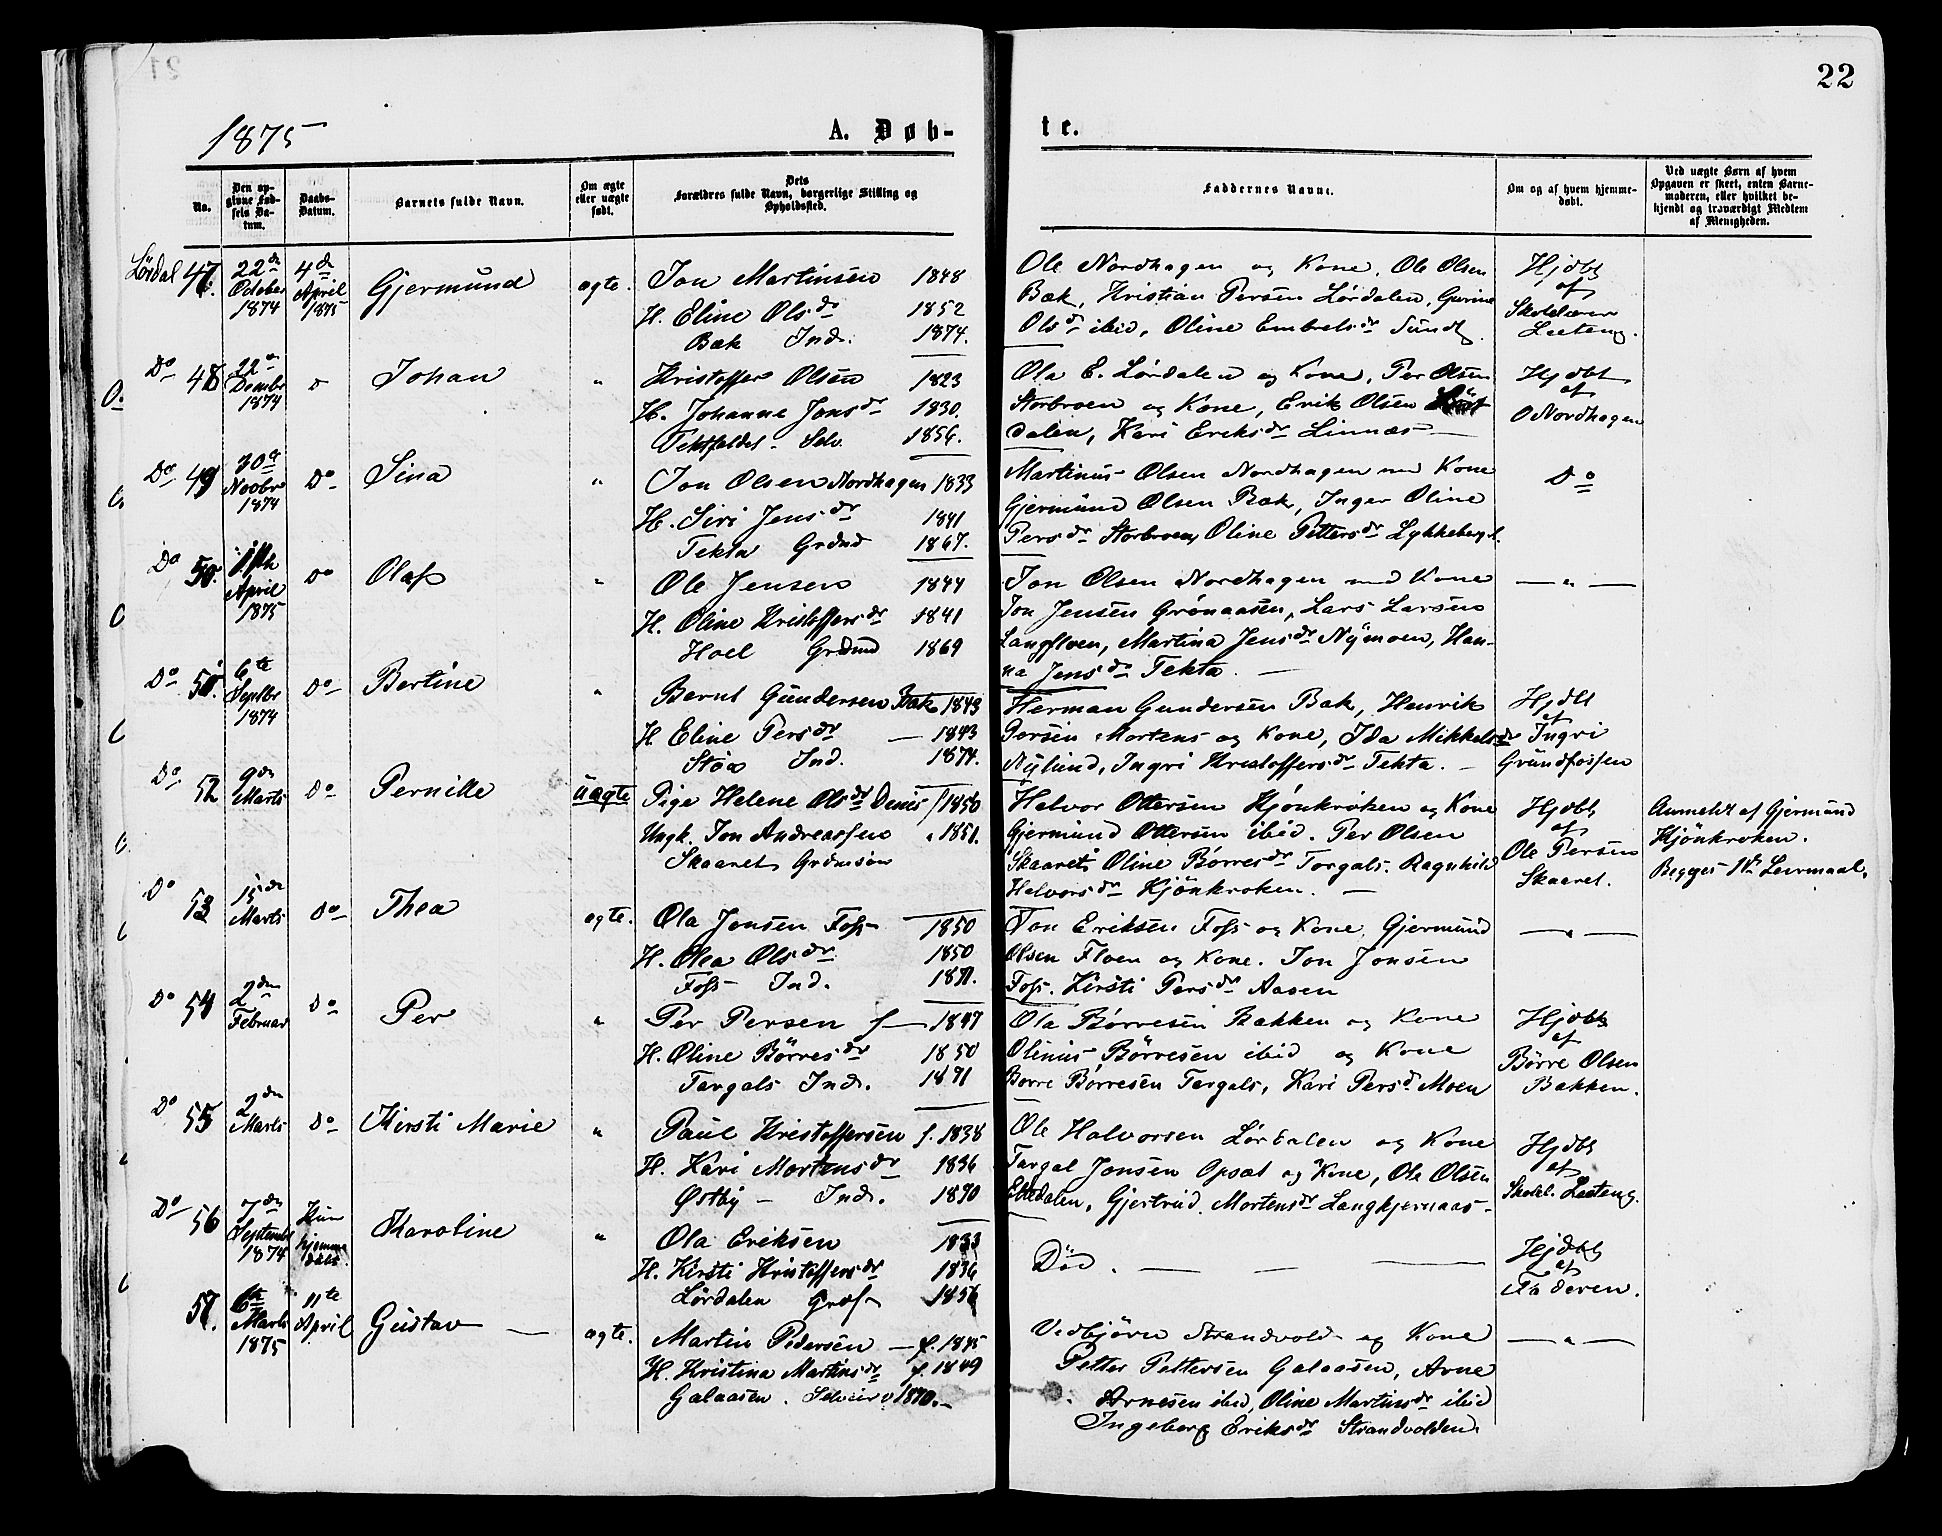 22
1875
A. Døb-
te.
No.
Den op-
givne Fød-
sels Da-
tum.
Daabs-
Datum.
Barnets fulde Navn.
Om ægte
eller uægte
født.
Dets
Forældres fulde Navn, borgerlige Stilling og
Opholdssted.
Faddernes Navne.
Om og af hvem hjemme-
døbt.
Ved uægte Børn af hvem
Opgaven er skeet, enten Barne-
moderen, eller hvilket be-
kjendt og troværdigt Medlem
af Menigheden.
Lørdal 47. 22de October 1874 4de April 1875 Gjermund ægte. Jon Martinsen 1848
H. Eline Olsdr 1852
Bæk Ind. 1874.
Ole Nordhagen og Kone, Ole Olsen
Bæk, Kristian Persen Lørdalen, Gurine
Olsdr ibid, Oline Embretsdr Sundt.
Hjdbt
af
Skolelærer
Leeteng.
Do 48 22de Dcembr 1874 Johan " Kristoffer Olsen 1823
H. Johanne Jonsdr 1830.
Selv. 1856.
Ola E. Lørdalen og Kone, Per Olsen
Storbroen og Kone, Erik Olsen
dalen, Kari Eriksdr Linnæs
Hjdbt
af
O Nordhagen
Do 49 30de Novbr 1874 Do Sina " Jon Olsen Nordhagen 1833
H. Siri Jensdr 1841
Tekta Grdmd 1867.
Martinus Olsen Nordhagen med Kone
Gjermund Olsen Bæk, Inger Oline
Persdr Storbroen, Oline Pettersdr Lykkeberget.
Do
Do 50. April 1875 Do Olaf " Ole Jensen 1844
H. Oline Kristoffersdr 1841
Hoel Grdmd 1869
Jon Olsen Nordhagen med Kone
Jon Jensen Grønaasen, Lars Larsen
Langfloen, Martina Jensdr Nymoen, Han-
na Jensdr Tekta.
— " —
Do 51. 6te Septbr 1874 Do Bertine " Bernt Gundersen Bæk 1843
H. Eline Persdr — 1843
Støa Ind. 1874.
Herman Gundersen Bæk, Henrik
Persen Mortens og Kone, Ida Mikkelsdr
Nylund, Ingri Kristoffersdr Tekta.
Hjdbt
af
Ingri
Grundfossen
Do 52 9de Marts Do Pernille uægte Pige Helene Olsdr 1850
Ungk. Jon Andreassen " 1851.
Skaaret Grdmsøn
Halvor Ottersen Kjønkroken og Kone
Gjermund Ottersen ibid. Per Olsen
Skaaret, Oline Børresdr Torgals. Ragnhild
Halvorsdr Kjønkroken. —
Hjdbt
af
Ole Persen
Skaaret.
Anmeldt af Gjermund
Kjönkroken.
Begges 1ste Leiermaal.
Do 53 15de Marts Do Thea ægte. Ola Jonsen Foss 1850
H. Olea Olsdr 1850
Foss Ind. 1871.
Jon Eriksen Foss og Kone, Gjermund
Olsen Floen og Kone. Jon Jonsen
Foss. Kirsti Persdr Aasen
— " —
Do 54 2den Februar Do Per " Per Persen f — 1847
H. Oline Børresdr 1850
Torgals Ind. 1871
Ola Børresen Bakken og Kone
Olinus Børresen ibid og Kone
Børre Børresen Torgals, Kari Persd Moen
Hjdbt
af
Børre Olsen
Bakken.
Do 55 2den Marts Do Kirsti Marie " Paul Kristoffersen f. 1838
H. Kari Mortensdr 1836
Østby — Ind. 1870
Ole Halvorsen Lørdalen og Kone
Torgal Jonsen Opsæt og Kone, Ole Olsen
Eltdalen, Gjertrud Mortensdr Langkjernaas
Hjdbt
af
Skolel. Leeteng.
Do 56 7de September 1874 Kun hjemme døbt. Karoline " Ola Eriksen 1833
H. Kirsti Kristoffersdr 1836
Lørdalen 1856
Död. — — —
Hjdbt
af
Faderen.
57. 6te Marts 1875 11te April Gustav — ægte. Martin Pedersen — f. 1845
H. Kristina Martinsdr f. 1849
Galaasen. Selveier 1870.
Vedbjörn Strandvold og Kone
Petter Pettersen Galaasen, Arne
Arnesen ibid, Oline Martinsdr ibid
Ingeborg Eriksdr Strandvolden.
— " —